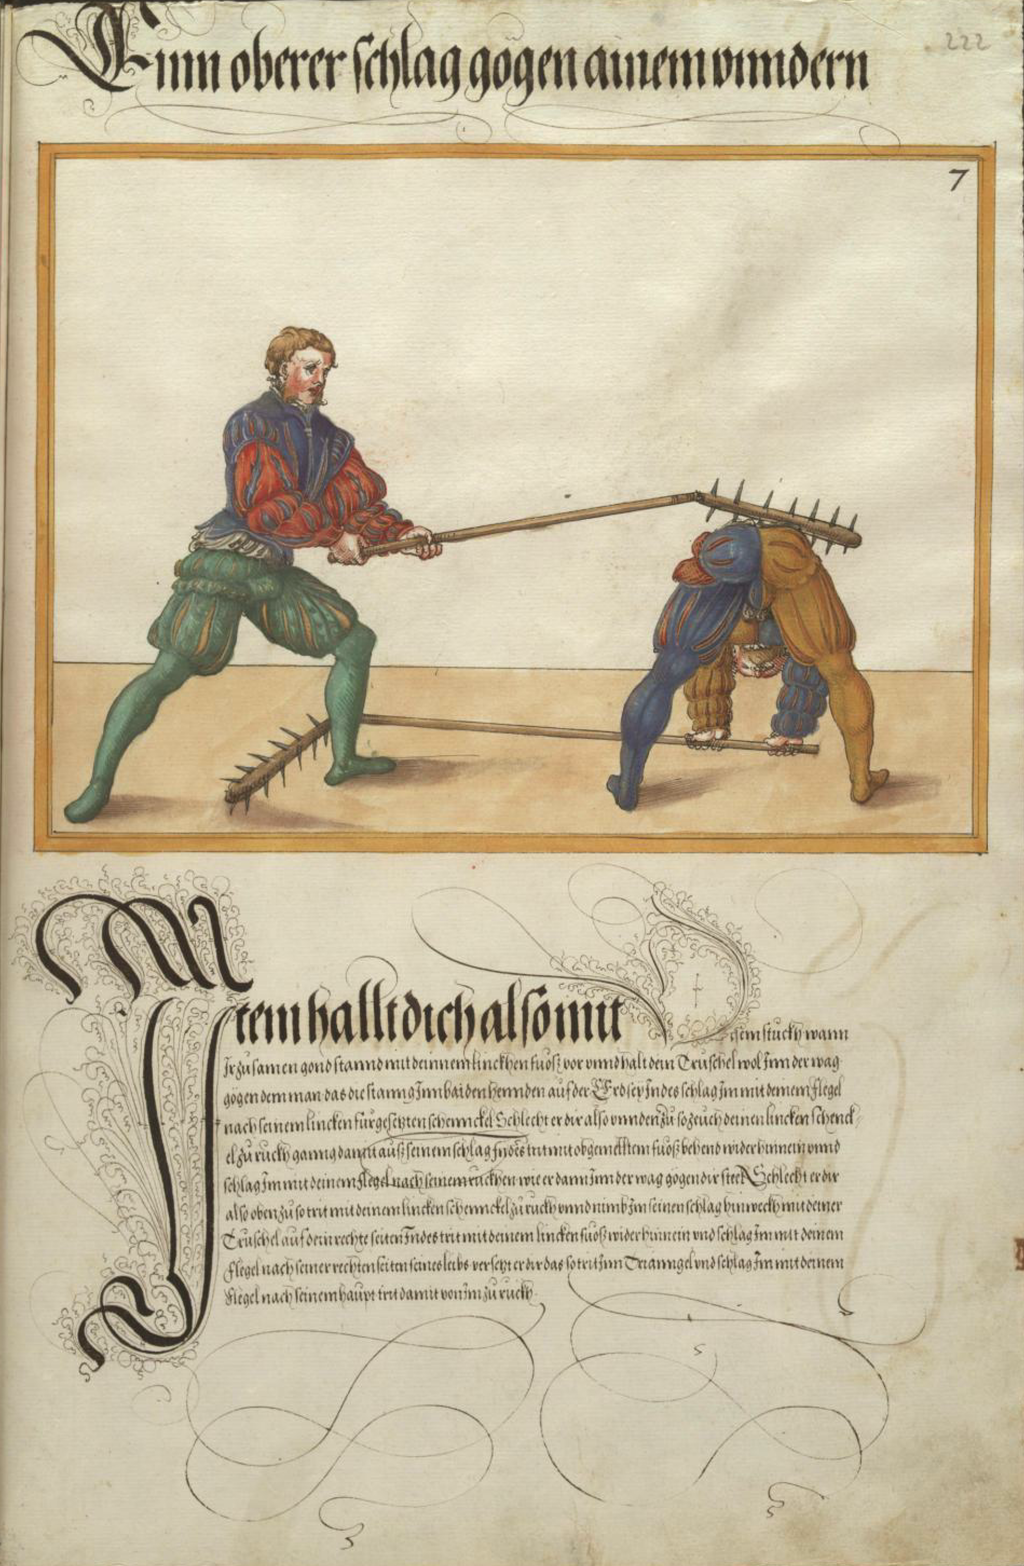 222
Ainn oberer schlag gögen ainem unndern
7
Item hallt dich also mit disem stuckh wann
Ir zusamen gond stannd mit deinnem linckhen fuosz vor unnd halt dein Truschel wol Inn der wag
gögen dem man das die stanng Inn baiden hennden auf der Erd sey Indes schlag Im mit deinem flegel
nach seinem lincken fürgesetzten schennckel Schlecht er dir also unnden zu so zeuch deinen lincken schenck-
el zu ruckh ganng damit ausz seinem schlag Indes trit mit obgemelltem fuosz behend wider hinnein unnd
schlag Im mit deinem flegel nach seinem ruckhen wie er dann Inn der wag gögen dir steet Schlecht er dir
also oben zu so trit mit deinem lincken schennckel zu ruckh unnd nimb Im seinen schlag hinweckh mit deiner
Truschel auf dein rechte seiten Indes trit mit deinem lincken fuosz wider hinnein und schlag Im mit deinem
flegel nach seiner rechten seiten seines leibs versetzt er dir das so trit Inn Trianngel und schlag Im mit deinem
flegel nach seinem haupt trit damit von Im zu ruckh